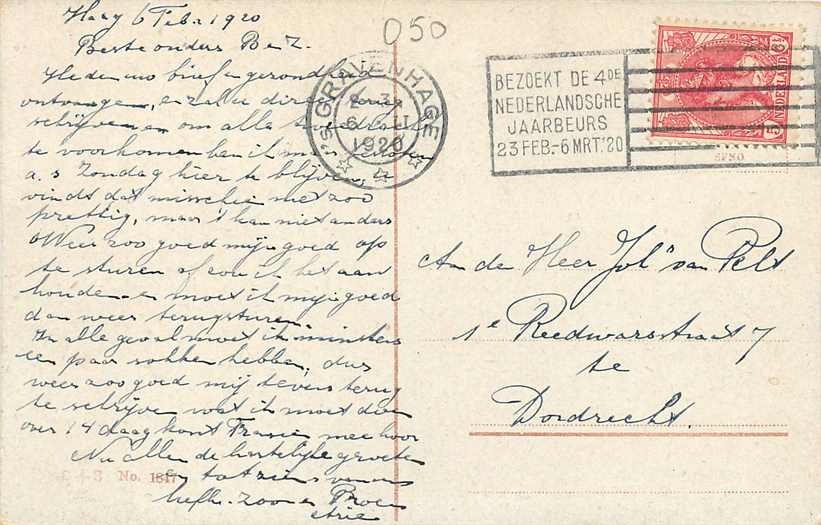 Haag 6 Febr. 1920
Beste ouders B en Z.
Heden uw brief in gezondheid
ontvangen, en zal u direct terug
schrijven om alle
te voorkomen ben ik
a.s. Zondag hier te blijven, u
vindt dat misschien niet zoo
prettig, maar 't kan niet anders
Wees zoo goed mijn goed op
te sturen of zou ik het aan
houden en moet ik mijn goed
dan weer terugsturen.
In alle geval moet ik minstens
een paar sokken hebben, dus
wees zoo goed mij tevens terug
te schrijven wat ik moet doen
over 14 daag komt Francien mee hoor
Nu allen de hartelijke groeten
en tot ziens van uw
liefh. zoon en Broer
Arie
050
'S-GRAVENHAGE
6 II
1920
BEZOEKT DE 4DE
NEDERLANDSCHE
JAARBEURS
23 FEB.-6 MRT.'20
NEDERLAND
5
Aan de Heer Joh van Pelt
1e Reedwarsstraat 7
te
Dordrecht.
No. 1847